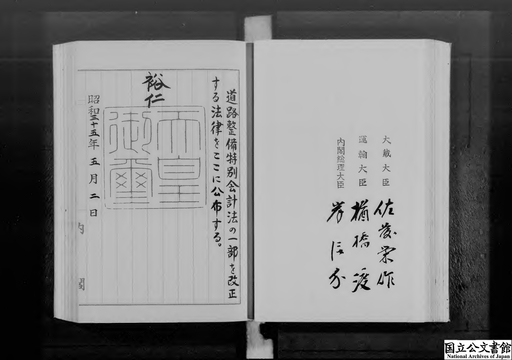 道路整備特別会計法の一部を改正
する法律をここに公布する。
裕仁
天皇
御璽
昭和三十五年五月二日
内閣
大蔵大臣 佐藤栄作
運輸大臣 楢橋渡
内閣総理大臣 岸信介
国立公文書館
National Archives of Japan